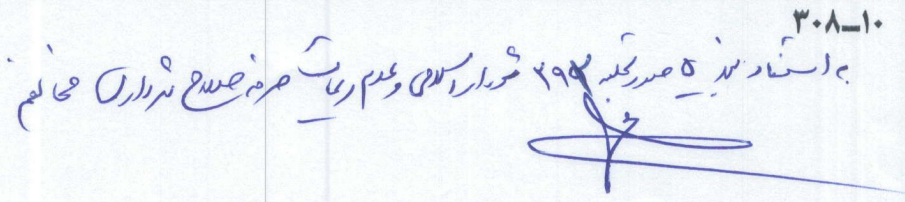 ۱۰ــ۳۰۸
به استناد بند ۵ صورتجلسه ۳۹۳ شورای اسلامی و عدم رعایت صرفه و صلاح شهرداری مخالفم